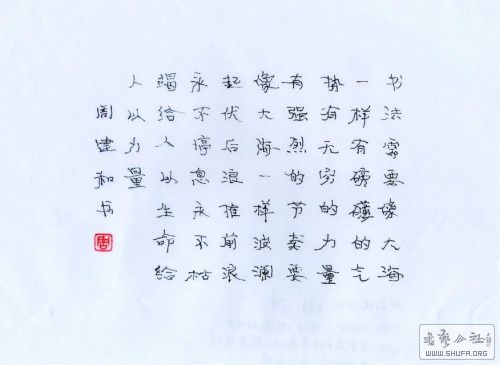 书法需要像大海
一样有磅礴的气
势有无穷的力量
有强烈的节奏要
像大海一样波澜
起伏后浪推前浪
永不停息永不枯
竭给人以生命给
人以力量
周建和书
周
書藝公社
WWW.SHUFA.ORG